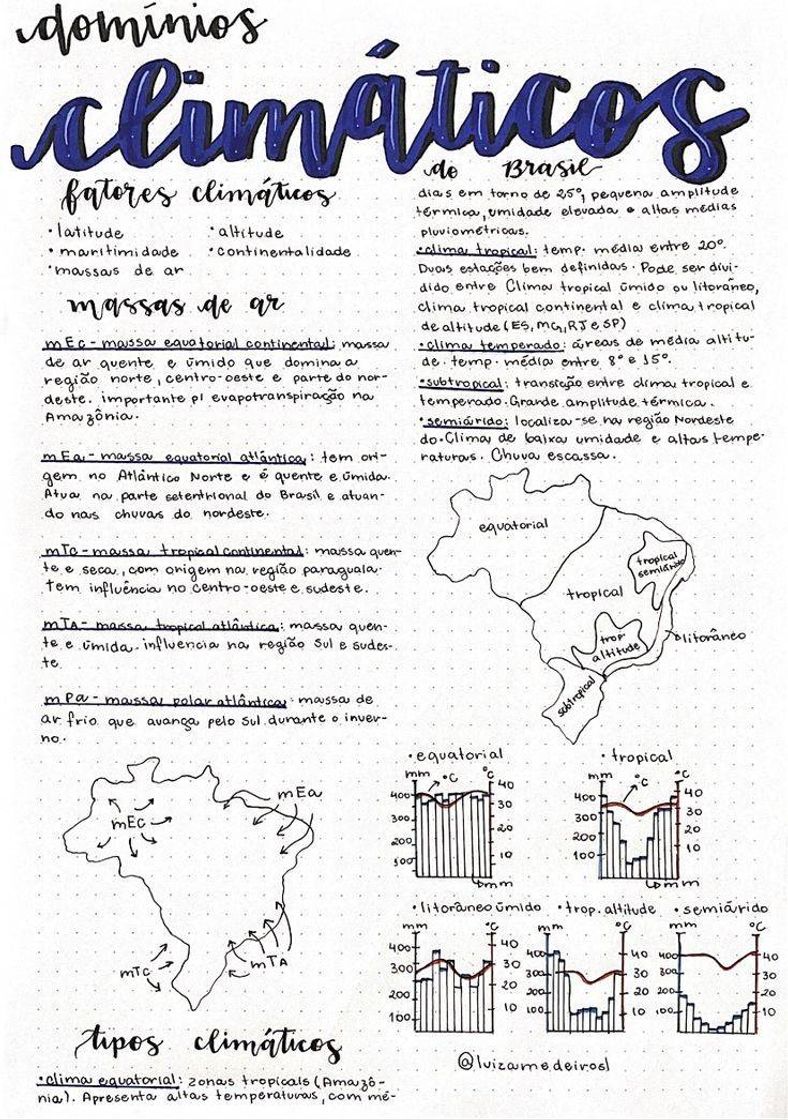 domínios
climáticos
do Brasil
fatores climáticos
• latitude • altitude
• maritimidade • continentalidade
• massas de ar
massas de ar
mEc - massa equatorial continental: massa
de ar quente e úmido que domina a
região norte, centro-oeste e parte do nor-
deste. importante p/ evapotranspiração na
Amazônia.
mEa - massa equatorial atlântica: tem ori-
gem no Atlântico Norte e é quente e úmida.
Atua na parte setentrional do Brasil e atuan-
do nas chuvas do nordeste.
mTc - massa tropical continental: massa quen-
te e seca, com origem na região paraguaia.
Tem influência no centro-oeste e sudeste.
mTA - massa tropical atlântica: massa quen-
te e úmida. influencia na região Sul e sudes-
te.
mPa - massa polar atlântica: massa de
ar frio que avança pelo sul durante o inver-
no.
mEa
mEc
mTc
mTA
tipos climáticos
• clima equatorial: zonas tropicais (Amazô-
nia). Apresenta altas temperaturas, com mé-
dias em torno de 25°, pequena amplitude
térmica, umidade elevada e altas médias
pluviométricas.
• clima tropical: temp. média entre 20°.
Duas estações bem definidas. Pode ser divi-
dido entre Clima tropical úmido ou litorâneo,
clima tropical continental e clima tropical
de altitude (ES, MG, RJ e SP)
• clima temperado: áreas de média altitu-
de. temp. média entre 8° e 15°.
• subtropical: transição entre clima tropical e
temperado. Grande amplitude térmica.
• semiárido: localiza-se na região Nordeste
do. Clima de baixa umidade e altas tempe-
raturas. Chuva escassa.
equatorial
tropical
semiárido
tropical
litorâneo
trop.
altitude
subtropical
• equatorial • tropical
mm °C °C mm °C °C
400 40 400 40
300 30 300 30
200 20 200 20
100 10 100 10
mm mm
• litorâneo úmido • trop. altitude • semiárido
mm °C mm °C mm °C
400 40 400 40 400 40
300 30 300 30 300 30
200 20 200 20 200 20
100 10 100 10 100 10
@luizamedeirosl